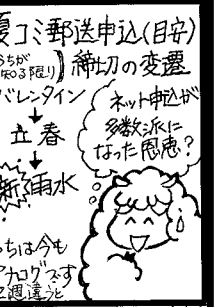 夏コミ郵送申込(目安)
うちが
知る限り
締切の変遷
バレンタイン
↓
立春
↓
新雨水
ネット申込が
多数派に
なった恩恵?
っちは今も
アナログです
2週違うと